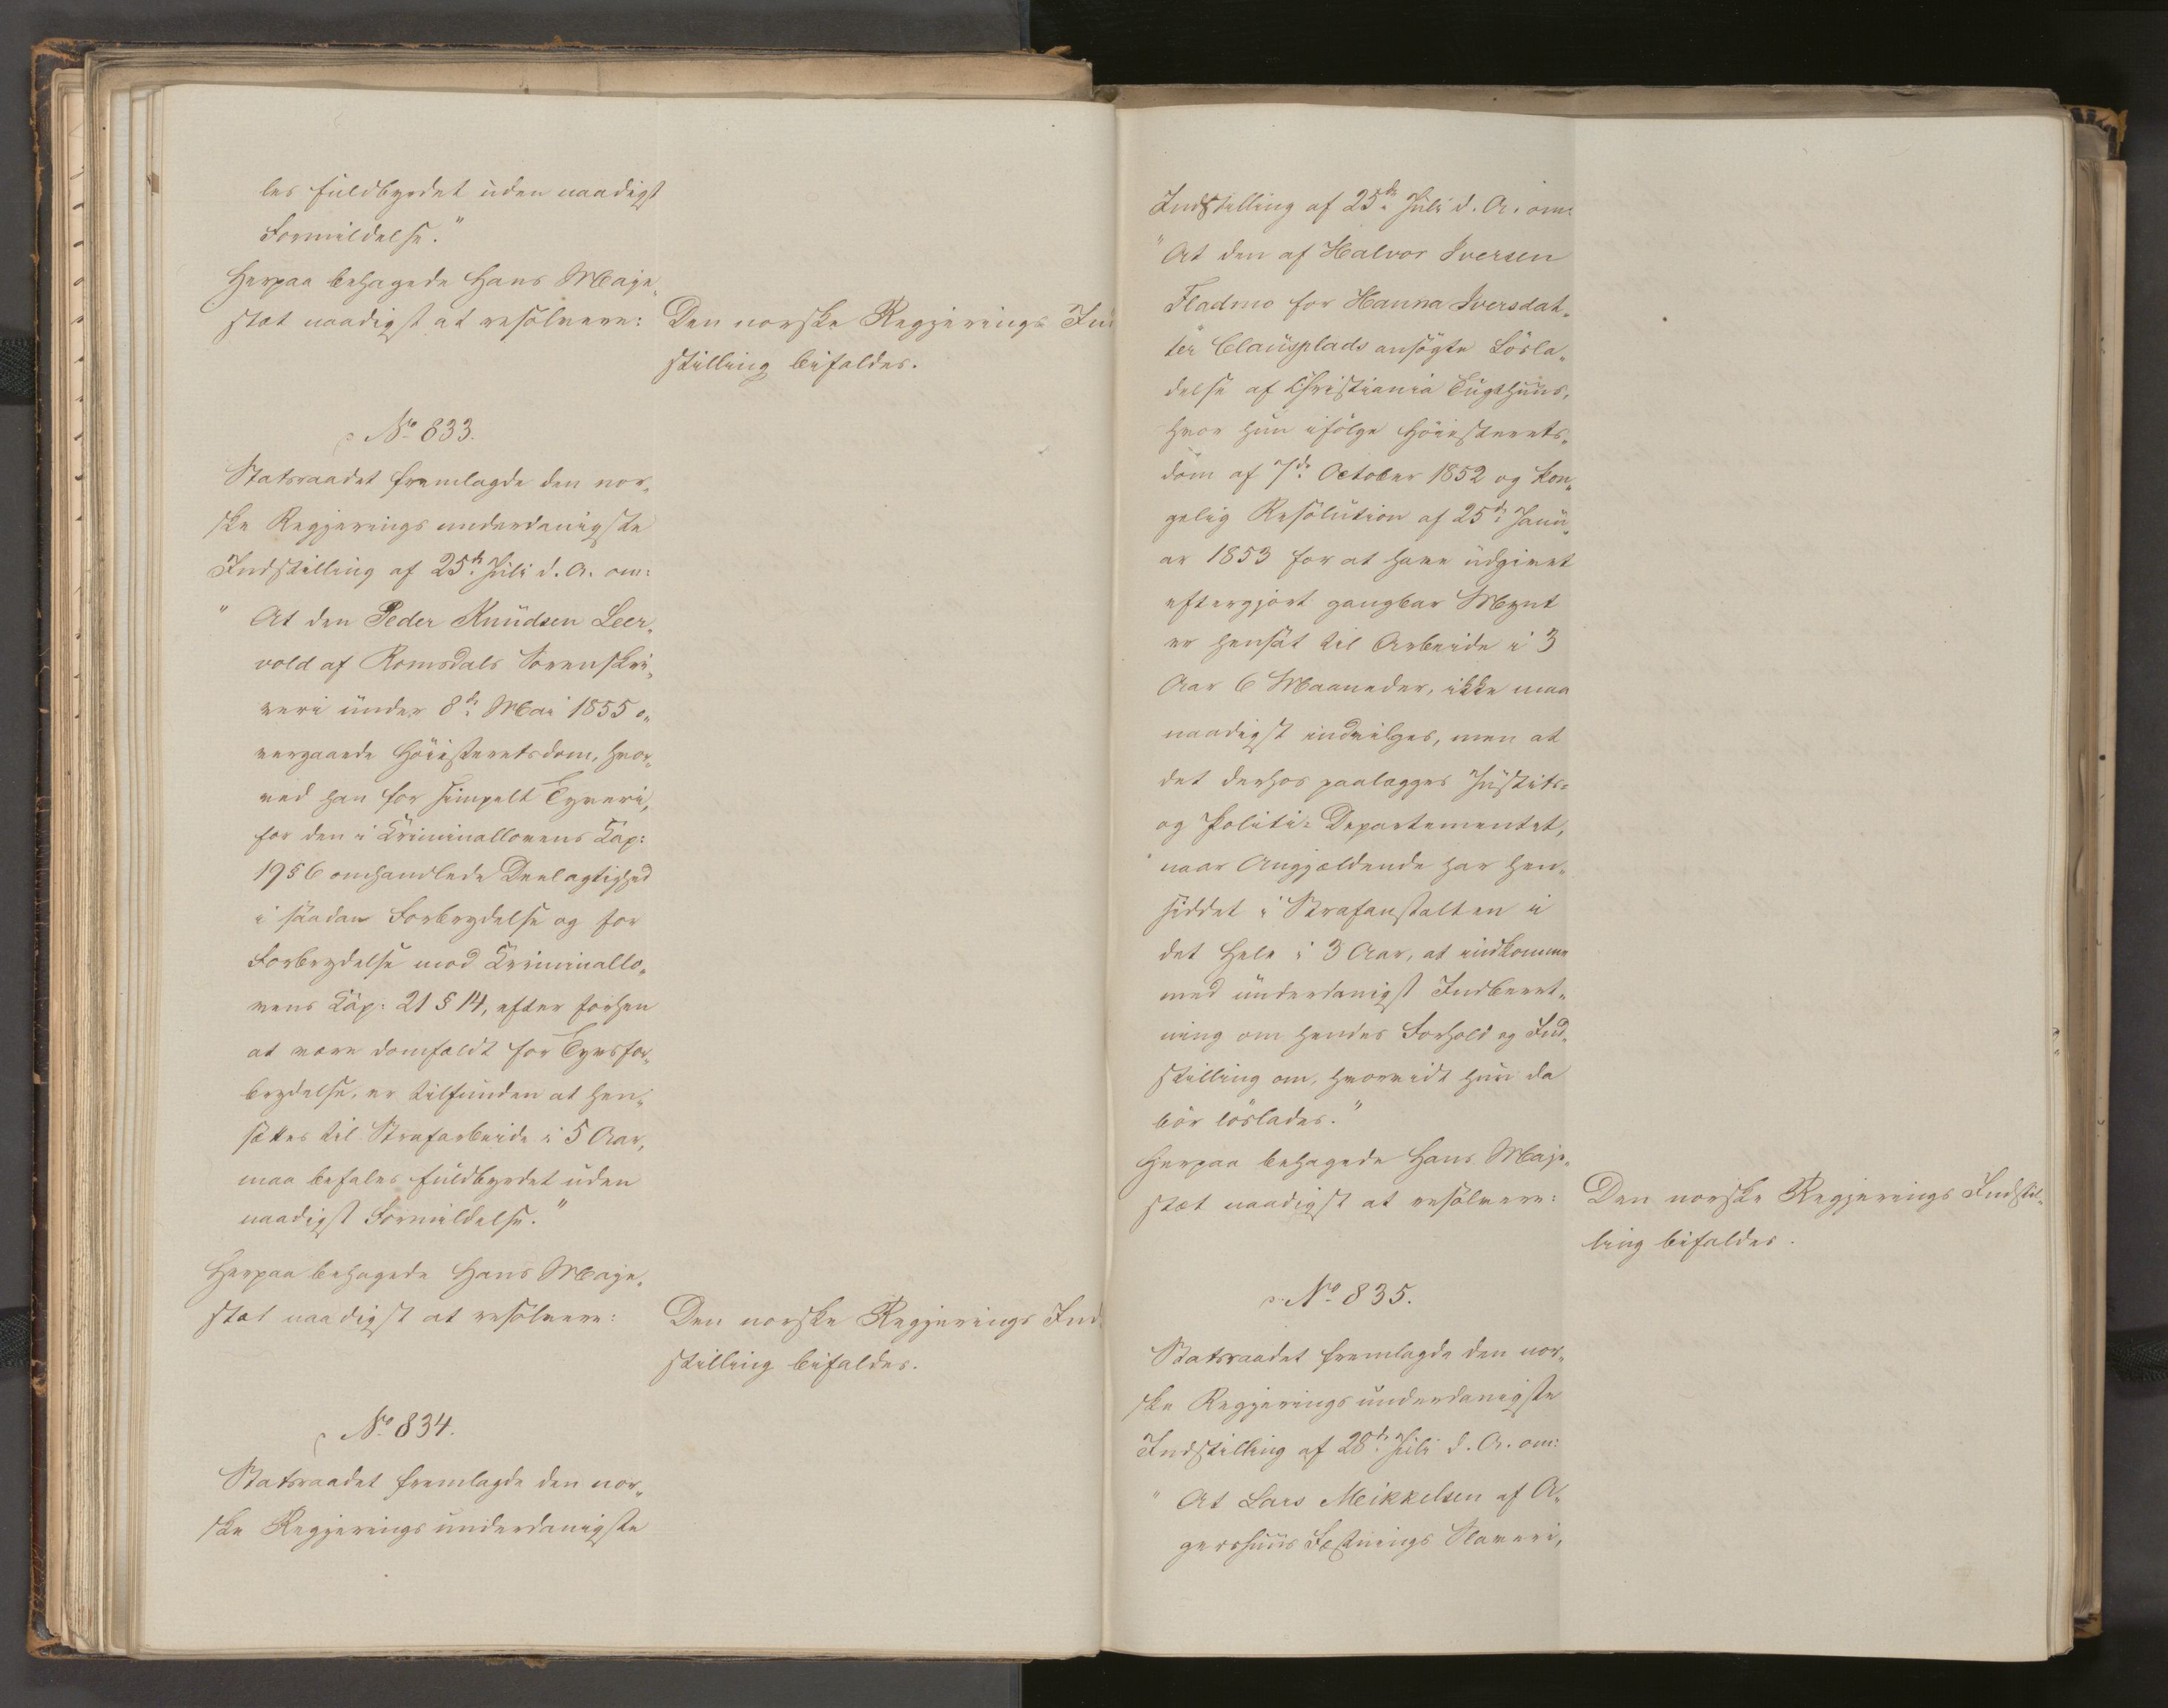 les fuldbyrdet uden naadigst
Formildelse."
Herpaa behagede Hans Maje„
stæt naadigst at resolvere:
Den norske Regjerings Ind
stilling bifaldes.
No 833.
Statsraadet fremlagde den nor„
ske Regjerings underdanigste
Indstilling af 25de Juli d. A. om:
" At den Peder Knudsen Leer„
vold af Romsdals Sorenskri„
veri under 8de Mai 1855 o„
vergaaede Höiesteretsdom, hvor„
ved han for simpelt Tyveri,
for den i Kriminallovens Kap:
19 § 6 omhandlede Deelagtighed
i saadan Forbrydelse og for
Forbrydelse mod Kriminallo„
vens Kap: 21 § 14, efter forhen
at være domfældt for Tyvsfor„
brydelse, er tilfunden at hen„
sættes til Strafarbeide i 5 Aar,
maa befales fuldbyrdet uden
naadigst Formildelse."
Herpaa behagede Hans Maje„
stæt naadigst at resolvere:
Den norske Regjerings Ind
stilling bifaldes.
No 834.
Statsraadet fremlagde den nor„
ske Regjerings underdanigste
Indstilling af 25de Juli d. A. om:
"At den af Halvor Iversen
Fladmo for Hanna Iversdat„
ter Clausplads ansögte Lösla„
delse af Christiania Tugthuus,
hvor hun ifölge Höiesterets„
dom af 7de October 1852 og kon„
gelig Resolution af 25de Janu„
ar 1853 for at have udgivet
eftergjort gangbar Mynt
er hensat til Arbeide i 3
Aar 6 Maaneder, ikke maa
naadigst indvilges, men at
det derhos paalægges Justits-
og Politi-Departementet,
naar Angjældende har hen„
siddet i Strafanstalten i
det Hele i 3 Aar, at indkomme
med underdanigst Indberet„
ning om hendes Forhold og Ind„
stilling om, hvorvidt hun da
bör löslades."
Herpaa behagede Hans Maje„
stæt naadigst at resolvere:
Den norske Regjerings Indstil„
ling bifaldes.
No 835.
Statsraadet fremlagde den nor„
ske Regjerings underdanigste
Indstilling af 28de Juli d. A. om:
" At Lars Meikkelsen af A„
gershuus Fæstnings Slaveri,